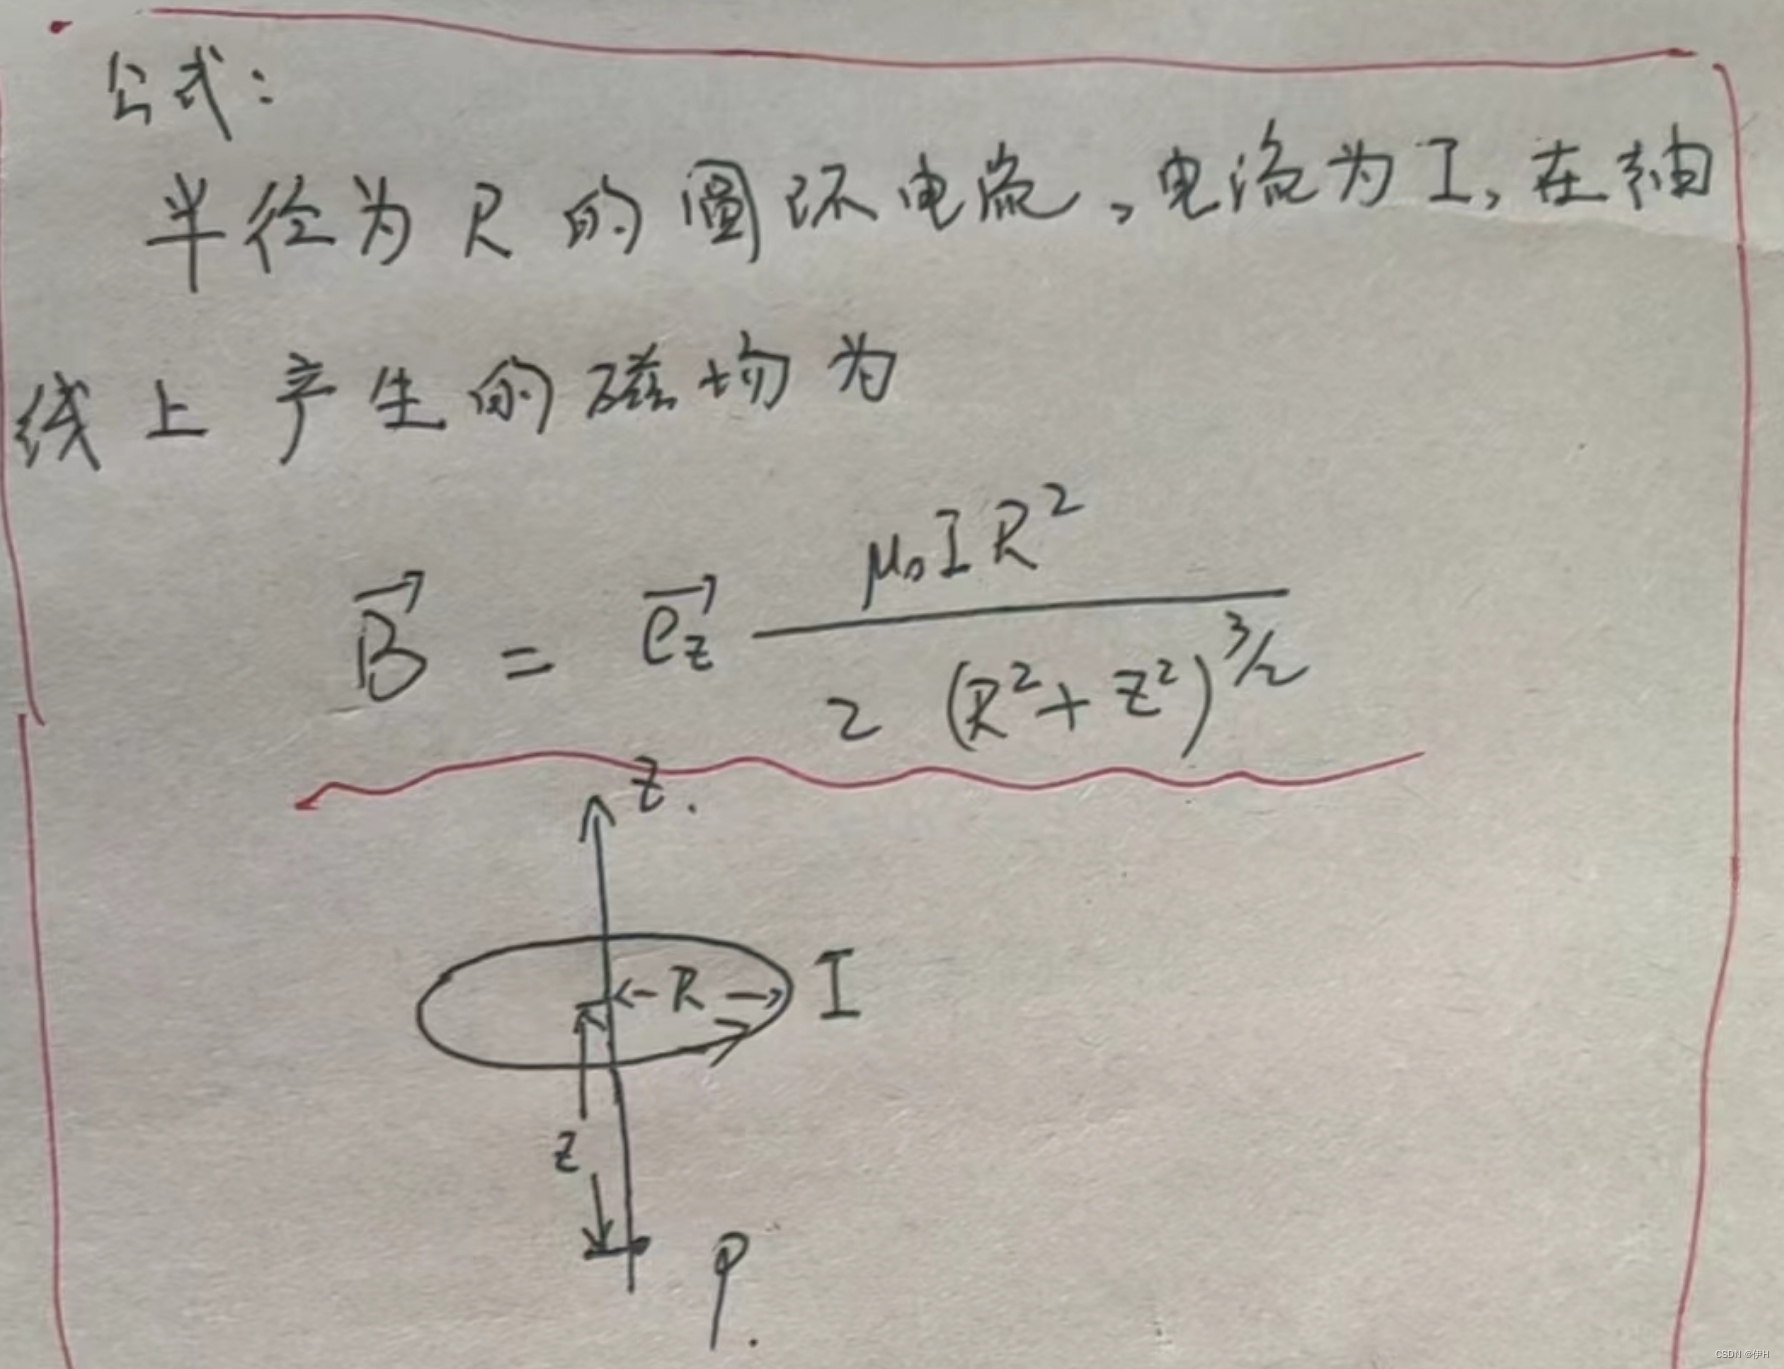 公式:
半径为 R 的圆环电流,电流为 I,在轴
线上产生的磁场为
$\vec{B} = \vec{e_z} \frac{\mu_0 I R^2}{2 (R^2 + z^2)^{3/2}}$
z.
R
I
z
P.
CSDN @伊H